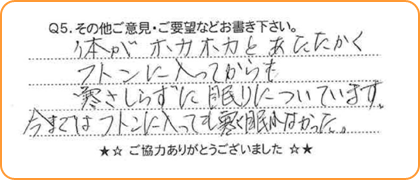 Q5.その他ご意見・ご要望などお書き下さい。
体がホカホカとあたたかく
フトンに入ってからも
寒さしらずに眠りについています。
今まではフトンに入っても寒く眠れなかった。
★☆ ご協力ありがとうございました ☆★